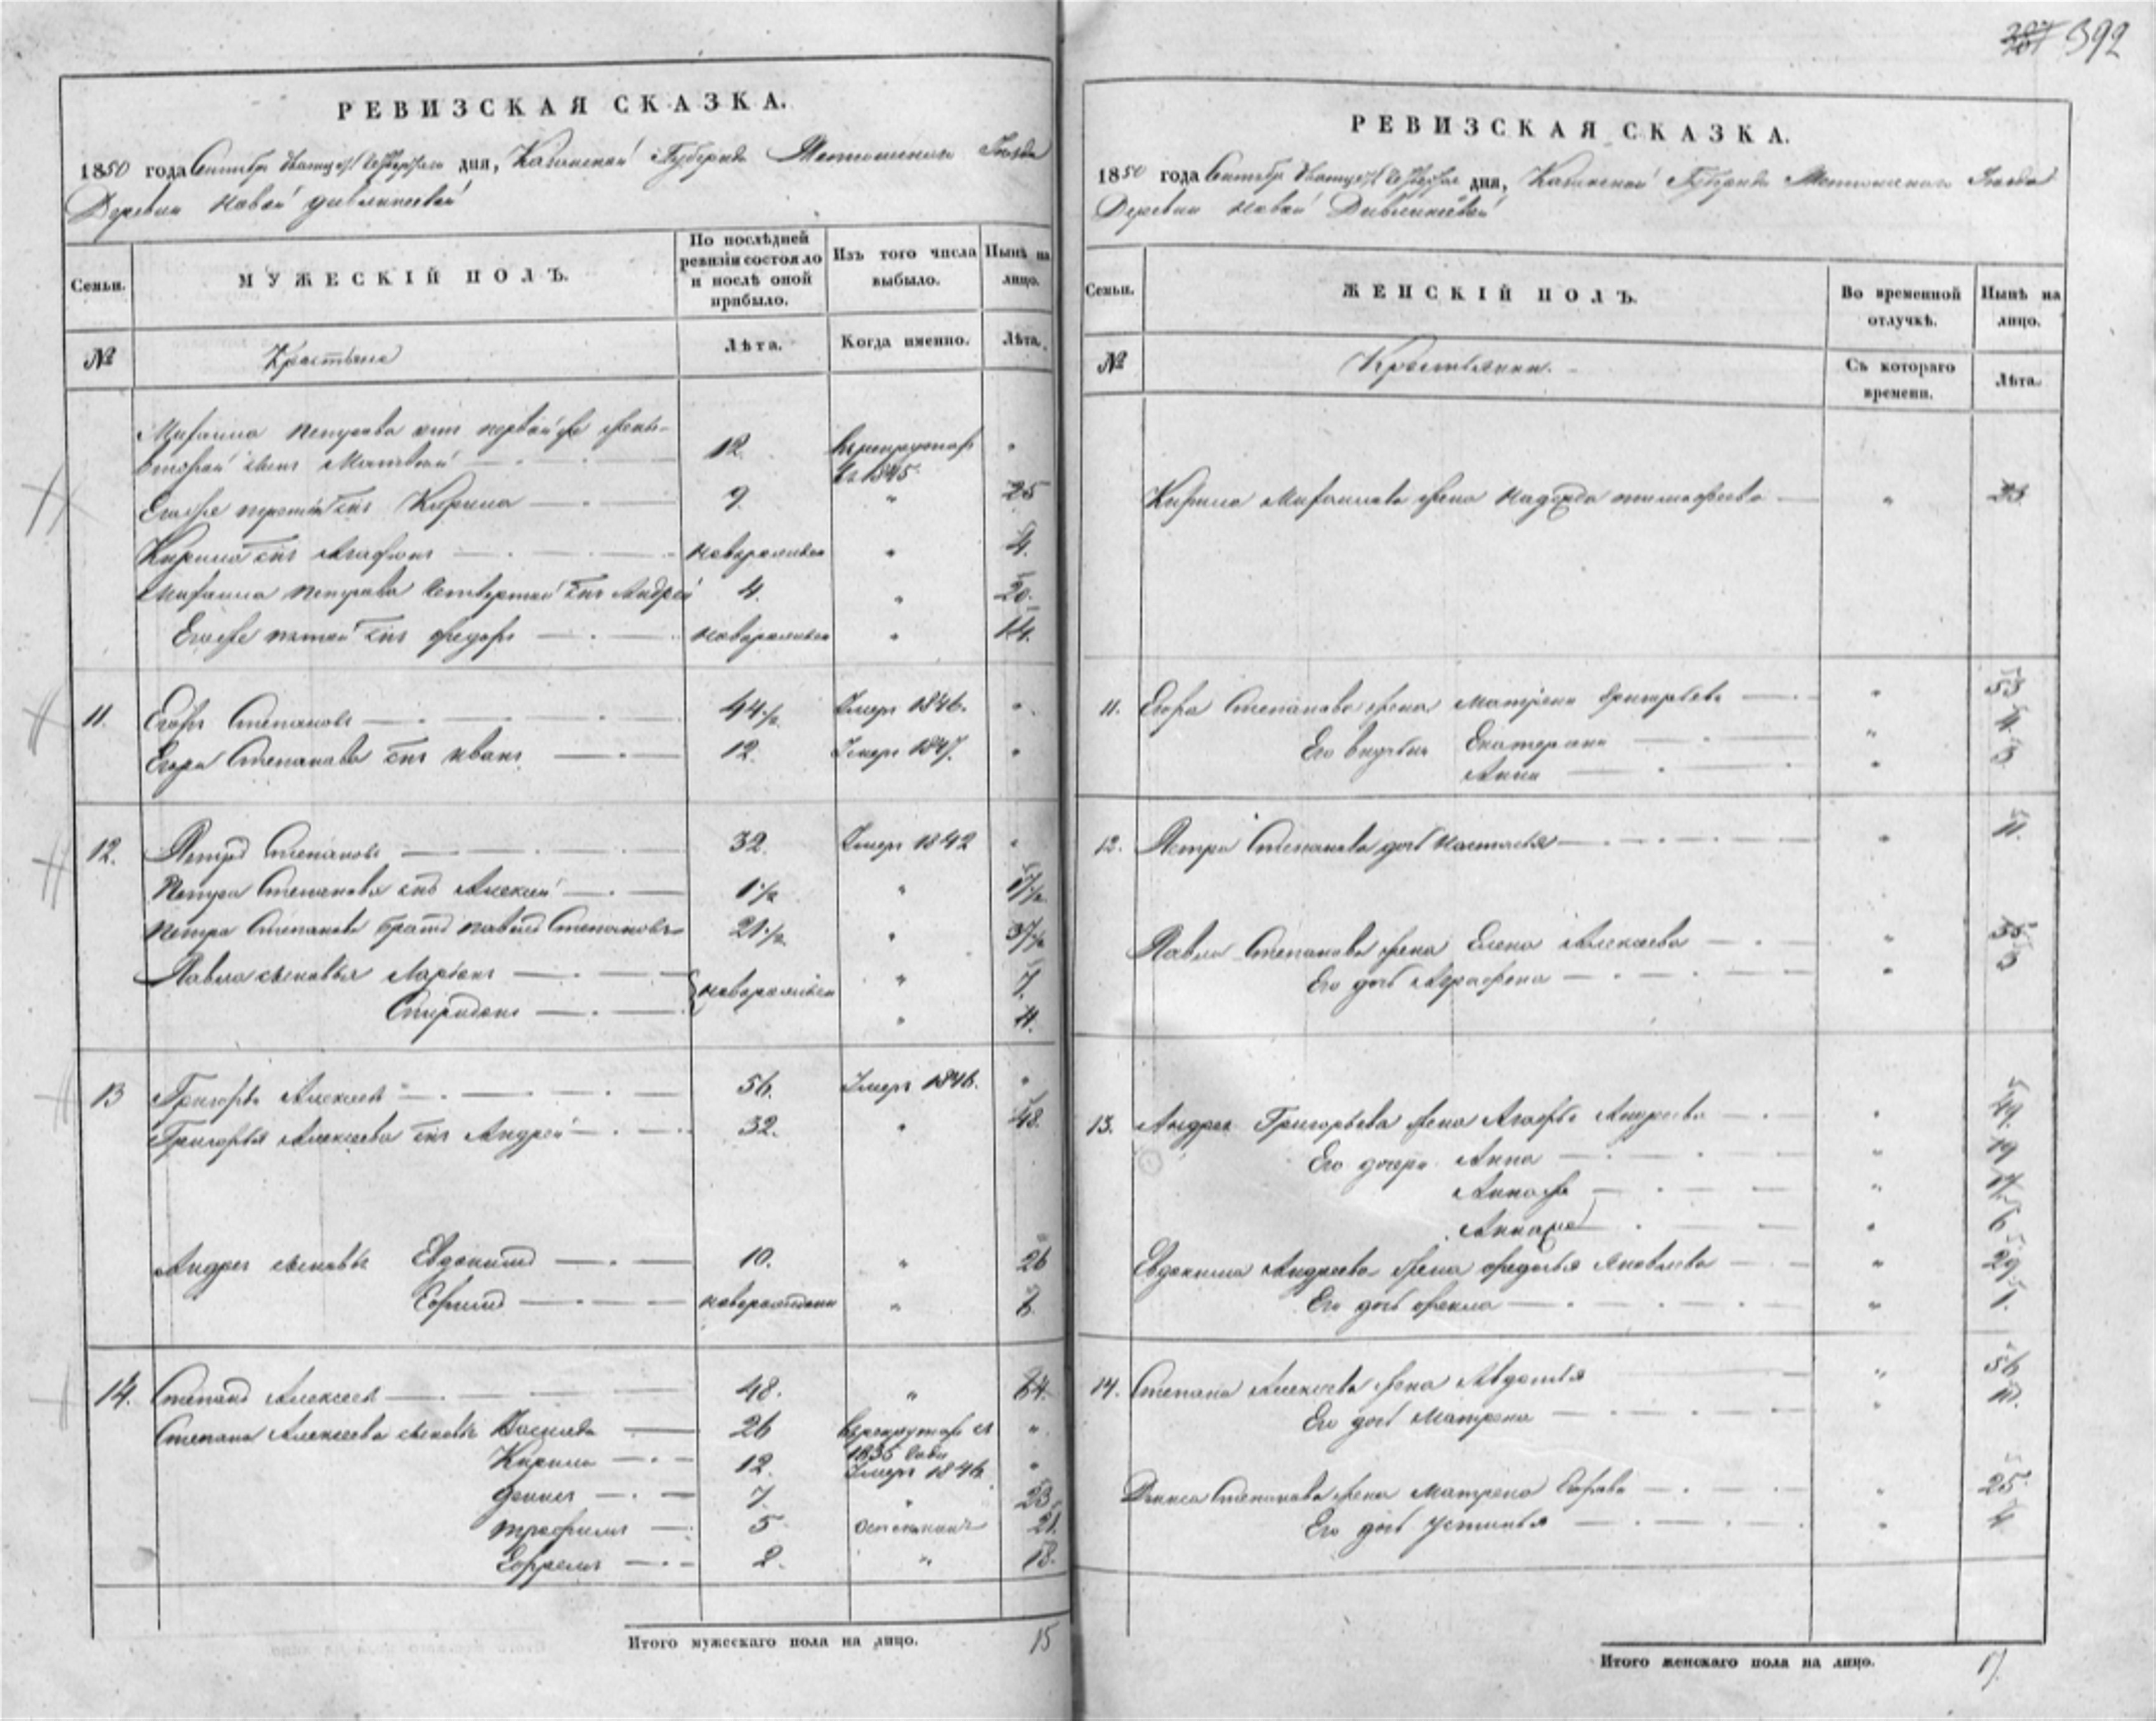 392
РЕВИЗСКАЯ СКАЗКА.
1850 года Сентября дня, Казанской Губернии Уезда
Деревни Новой
Семьи.
МУЖЕСКІЙ ПОЛЪ.
По послѣдней ревизіи состояло и послѣ оной прибыло.
Изъ того числа выбыло.
Нынѣ на лицо.
№
Крестьяне
Лѣта.
Когда именно.
Лѣта.
Михаила Петрова
12
Въ 1845
Кирила 9. " 25
Кирила сынъ Агафонъ новорожденъ " 4.
Михаила Петрова четвертый сынъ Андрей 4. " 20.
Егоже пятый сынъ Федоръ новорожденъ " 14.
11. Егоръ Степановъ 44½ Умеръ 1846. "
Егора Степанова сынъ Иванъ 12. Умеръ 1847. "
12. Петръ Степановъ 32. Умеръ 1842 "
Петра Степанова сынъ Алексей 1½ " 17½
Петра Степанова братъ Павелъ Степановъ 21½ " 37½
Павла сыновья Ларіонъ новорожденъ " 7.
Спиридонъ " 4.
13 Григорій Алексеевъ 56. Умеръ 1846. "
Григорья Алексеева сынъ Андрей 32. " 48.
Андрея сыновья Евдокимъ 10. " 26
Ефимъ новорожденъ "
14. Степанъ Алексеевъ 48. " 64.
Степана Алексеева сыновья Василей 26 въ рекруты въ 1835 году "
Кирила 12. Умеръ 1846 "
Денисъ 7. " 23.
Трофимъ 5 21.
Ефремъ 2. " 18.
Итого мужескаго пола на лицо. 15
РЕВИЗСКАЯ СКАЗКА.
1850 года Сентября дня, Казанской Губерніи Уезда
Деревни Новой
Семьи.
ЖЕНСКІЙ ПОЛЪ.
Во временной отлучкѣ.
Нынѣ на лицо.
№
Крестьянки.
Съ котораго времени.
Лѣта.
Кирила Михаилова жена Надежда Тимофеева "
11. Егора Степанова жена Матрена "
Екатерина "
Анна "
12. Петра Степанова дочь Настасья " 11.
Павла Степанова жена Елена Алексеева "
Его дочь Аграфена "
13. Андрея Григорьева жена Агафья Андреева " 49.
Его дочери Анна " 19
Анна же "
Анна же " 6
Евдокима Андреева жена Федосья Яковлева " 29
Его дочь Фекла " 1.
14. Степана Алексеева жена Авдотья " 56
Его дочь Матрена "
Дениса Степанова жена Матрена " 25.
Его дочь Устинья "
Итого женскаго пола на лицо. 17.